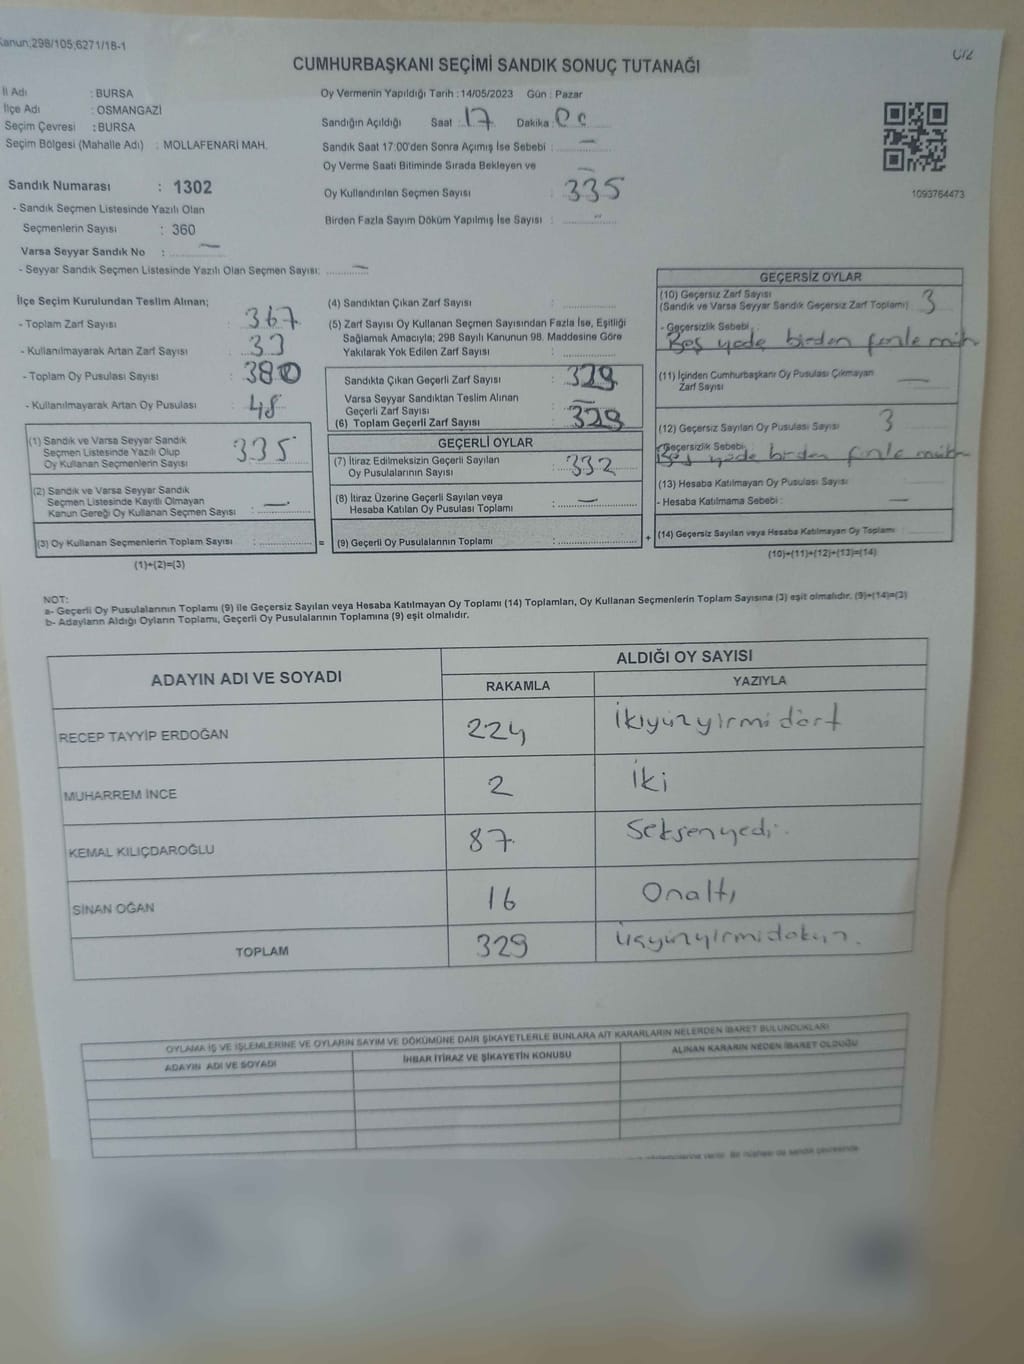 Kanun;298/105;6271/18-1
C/2
CUMHURBAŞKANI SEÇİMİ SANDIK SONUÇ TUTANAĞI
İl Adı : BURSA
İlçe Adı : OSMANGAZİ
Seçim Çevresi : BURSA
Seçim Bölgesi (Mahalle Adı) : MOLLAFENARİ MAH.
Sandık Numarası : 1302
- Sandık Seçmen Listesinde Yazılı Olan
Seçmenlerin Sayısı : 360
Varsa Seyyar Sandık No : —
- Seyyar Sandık Seçmen Listesinde Yazılı Olan Seçmen Sayısı: —
Oy Vermenin Yapıldığı Tarih : 14/05/2023 Gün : Pazar
Sandığın Açıldığı Saat : 17 Dakika : 00
Sandık Saat 17:00'den Sonra Açımış İse Sebebi : —
Oy Verme Saati Bitiminde Sırada Bekleyen ve
Oy Kullandırılan Seçmen Sayısı : 335
Birden Fazla Sayım Döküm Yapılmış İse Sayısı :
1093764473
İlçe Seçim Kurulundan Teslim Alınan;
- Toplam Zarf Sayısı : 367
- Kullanılmayarak Artan Zarf Sayısı : 33
- Toplam Oy Pusulası Sayısı : 380
- Kullanılmayarak Artan Oy Pusulası : 48
(1) Sandık ve Varsa Seyyar Sandık
Seçmen Listesinde Yazılı Olup
Oy Kullanan Seçmenlerin Sayısı 335
(2) Sandık ve Varsa Seyyar Sandık
Seçmen Listesinde Kayıtlı Olmayan
Kanun Gereği Oy Kullanan Seçmen Sayısı : —
(3) Oy Kullanan Seçmenlerin Toplam Sayısı :
(1)+(2)=(3)
(4) Sandıktan Çıkan Zarf Sayısı :
(5) Zarf Sayısı Oy Kullanan Seçmen Sayısından Fazla İse, Eşitliği
Sağlamak Amacıyla; 298 Sayılı Kanunun 98. Maddesine Göre
Yakılarak Yok Edilen Zarf Sayısı :
Sandıkta Çıkan Geçerli Zarf Sayısı : 329
Varsa Seyyar Sandıktan Teslim Alınan
Geçerli Zarf Sayısı : —
(6) Toplam Geçerli Zarf Sayısı : 329
GEÇERLİ OYLAR
(7) İtiraz Edilmeksizin Geçerli Sayılan
Oy Pusulalarının Sayısı : 332
(8) İtiraz Üzerine Geçerli Sayılan veya
Hesaba Katılan Oy Pusulası Toplamı : —
= (9) Geçerli Oy Pusulalarının Toplamı :
GEÇERSİZ OYLAR
(10) Geçersiz Zarf Sayısı
(Sandık ve Varsa Seyyar Sandık Geçersiz Zarf Toplamı) 3
- Geçersizlik Sebebi :
birden
(11) İçinden Cumhurbaşkanı Oy Pusulası Çıkmayan
Zarf Sayısı : —
(12) Geçersiz Sayılan Oy Pusulası Sayısı 3
Geçersizlik Sebebi
birden
(13) Hesaba Katılmayan Oy Pusulası Sayısı
- Hesaba Katılmama Sebebi : —
+ (14) Geçersiz Sayılan veya Hesaba Katılmayan Oy Toplamı
(10)+(11)+(12)+(13)=(14)
NOT:
a- Geçerli Oy Pusulalarının Toplamı (9) ile Geçersiz Sayılan veya Hesaba Katılmayan Oy Toplamı (14) Toplamları, Oy Kullanan Seçmenlerin Toplam Sayısına (3) eşit olmalıdır. (9)+(14)=(3)
b- Adayların Aldığı Oyların Toplamı, Geçerli Oy Pusulalarının Toplamına (9) eşit olmalıdır.
ADAYIN ADI VE SOYADI
ALDIĞI OY SAYISI
RAKAMLA YAZIYLA
RECEP TAYYİP ERDOĞAN 224 İkiyüzyirmidört
MUHARREM İNCE 2 iki
KEMAL KILIÇDAROĞLU 87 Seksenyedi
SİNAN OĞAN 16 Onaltı
TOPLAM 329 üçyüzyirmidokuz.
OYLAMA İŞ VE İŞLEMLERİNE VE OYLARIN SAYIM VE DÖKÜMÜNE DAİR ŞİKAYETLERLE BUNLARA AİT KARARLARIN NELERDEN İBARET BULUNDUKLARI
ADAYIN ADI VE SOYADI İHBAR İTİRAZ VE ŞİKAYETİN KONUSU ALINAN KARARIN NEDEN İBARET OLDUĞU